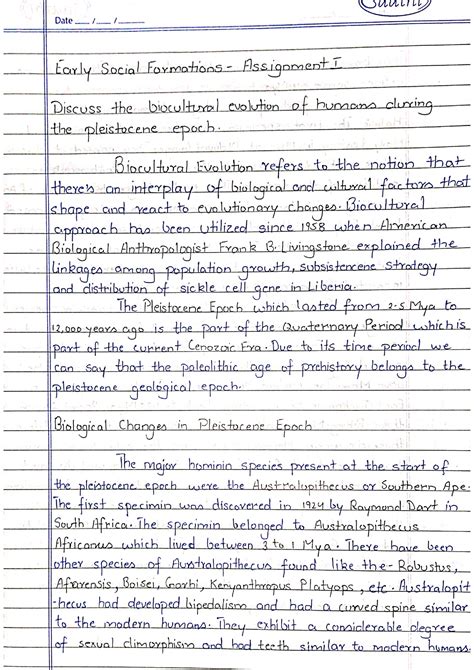 Date __/__/__
Early Social Formations - Assignment I
Discuss the biocultural evolution of humans during
the pleistocene epoch.
Biocultural Evolution refers to the notion that
there's an interplay of biological and cultural factors that
shape and react to evolutionary changes. Biocultural
approach has been utilized since 1958 when American
Biological Anthropologist Frank B. Livingstone explained the
linkages among population growth, subsistence strategy
and distribution of sickle cell gene in Liberia.
The Pleistocene Epoch which lasted from 2.5 Mya to
12,000 years ago is the part of the Quaternary Period which is
part of the current Cenozoic Era. Due to its time period we
can say that the paleolithic age of prehistory belongs to the
pleistocene geological epoch.
Biological Changes in Pleistocene Epoch
The major hominin species present at the start of
the pleistocene epoch were the Australopithecus or Southern Ape.
The first specimin was discovered in 1924 by Raymond Dart in
South Africa. The specimin belonged to Australopithecus
Africanus which lived between 3 to 1 Mya. There have been
other species of Australopithecus found like the - Robustus,
Afarensis, Boisei, Garhi, Kenyanthropus Platyops, etc. Australopit
-hecus had developed bipedalism and had a curved spine similar
to the modern humans. They exhibit a considerable degree
of sexual dimorphism and had teeth similar to modern humans